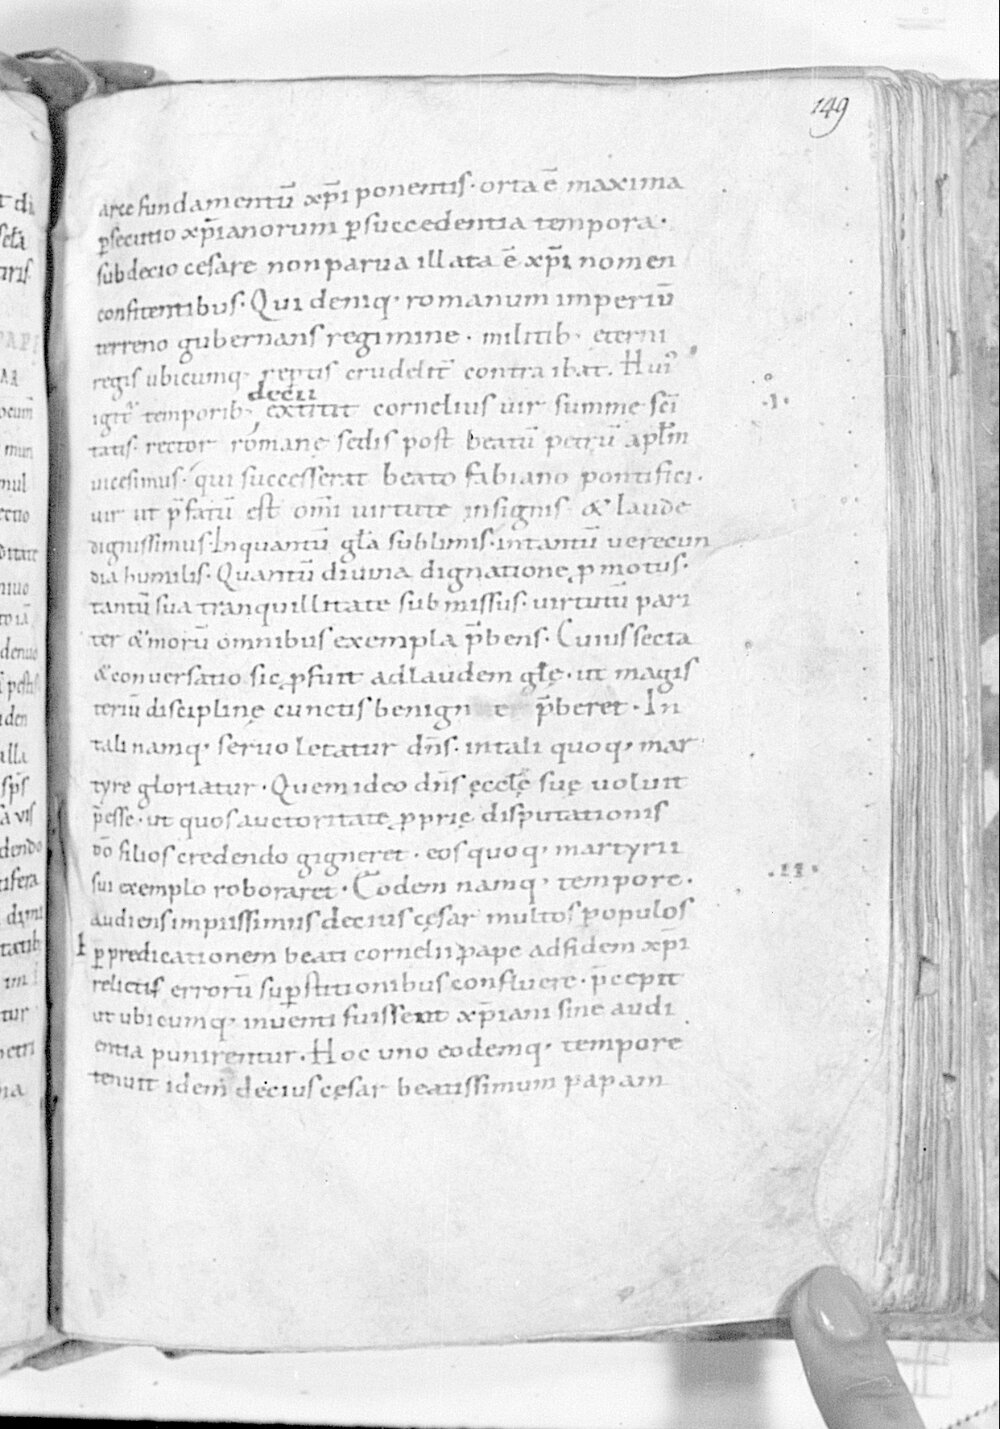 149
arce fundamentū xp̄i ponentis · orta ē maxima
ꝑsecutio xp̄ianorum ꝑ succedentia tempora ·
sub decio cesare non parua illata ē xp̄i nomen
confitentibus · Qui deniq· romanum imperiū
terreno gubernans regimine · militib· eterni
regis ubicumq· reptis crudelit̄ contra ibat. Hui᾽
decii
igit᾽ temporib· extitit cornelius uir summe sc̄i ·I·
tatis · rector romanę sedis post beatū petrū apl̄m
uicesimus · qui successerat beato fabiano pontifici ·
uir ut p̄fatū est om̄i uirtute insignis · & laude
dignissimus · Inquantū gl̄a sublimis · intantū uerecun
dia humilis · Quantū diuina dignatione ꝓmotus ·
tantū sua tranquillitate submissus · uirtutū pari
ter & morū omnibus exempla p̄bens · Cuius secta
& conuersatio sic ꝓfuit ad laudem gl̄ę · ut magis
teriū disciplinę cunctis benign e p̄beret · In
tali namq· seruo letatur dn̄s · in tali quoq· mar
tyre gloriatur · Quem ideo dn̄s ęccl̄ę suę uoluit
p̄esse · ut quos auctoritate ꝓprię disputationis
dō filios credendo gigneret · eos quoq· martyrii
sui exemplo roboraret · Eodem namq· tempore · ·II·
audiens impiissimus decius cęsar multos populos
ꝑ predicationem beati cornelii pape ad fidem xp̄i
relictis errorū suꝑstitionibus confluere · p̄cepit
ut ubicumq· inuenti fuissent xp̄iani sine audi
entia punirentur · Hoc uno eodemq· tempore
tenuit idem decius cęsar beatissimum papam